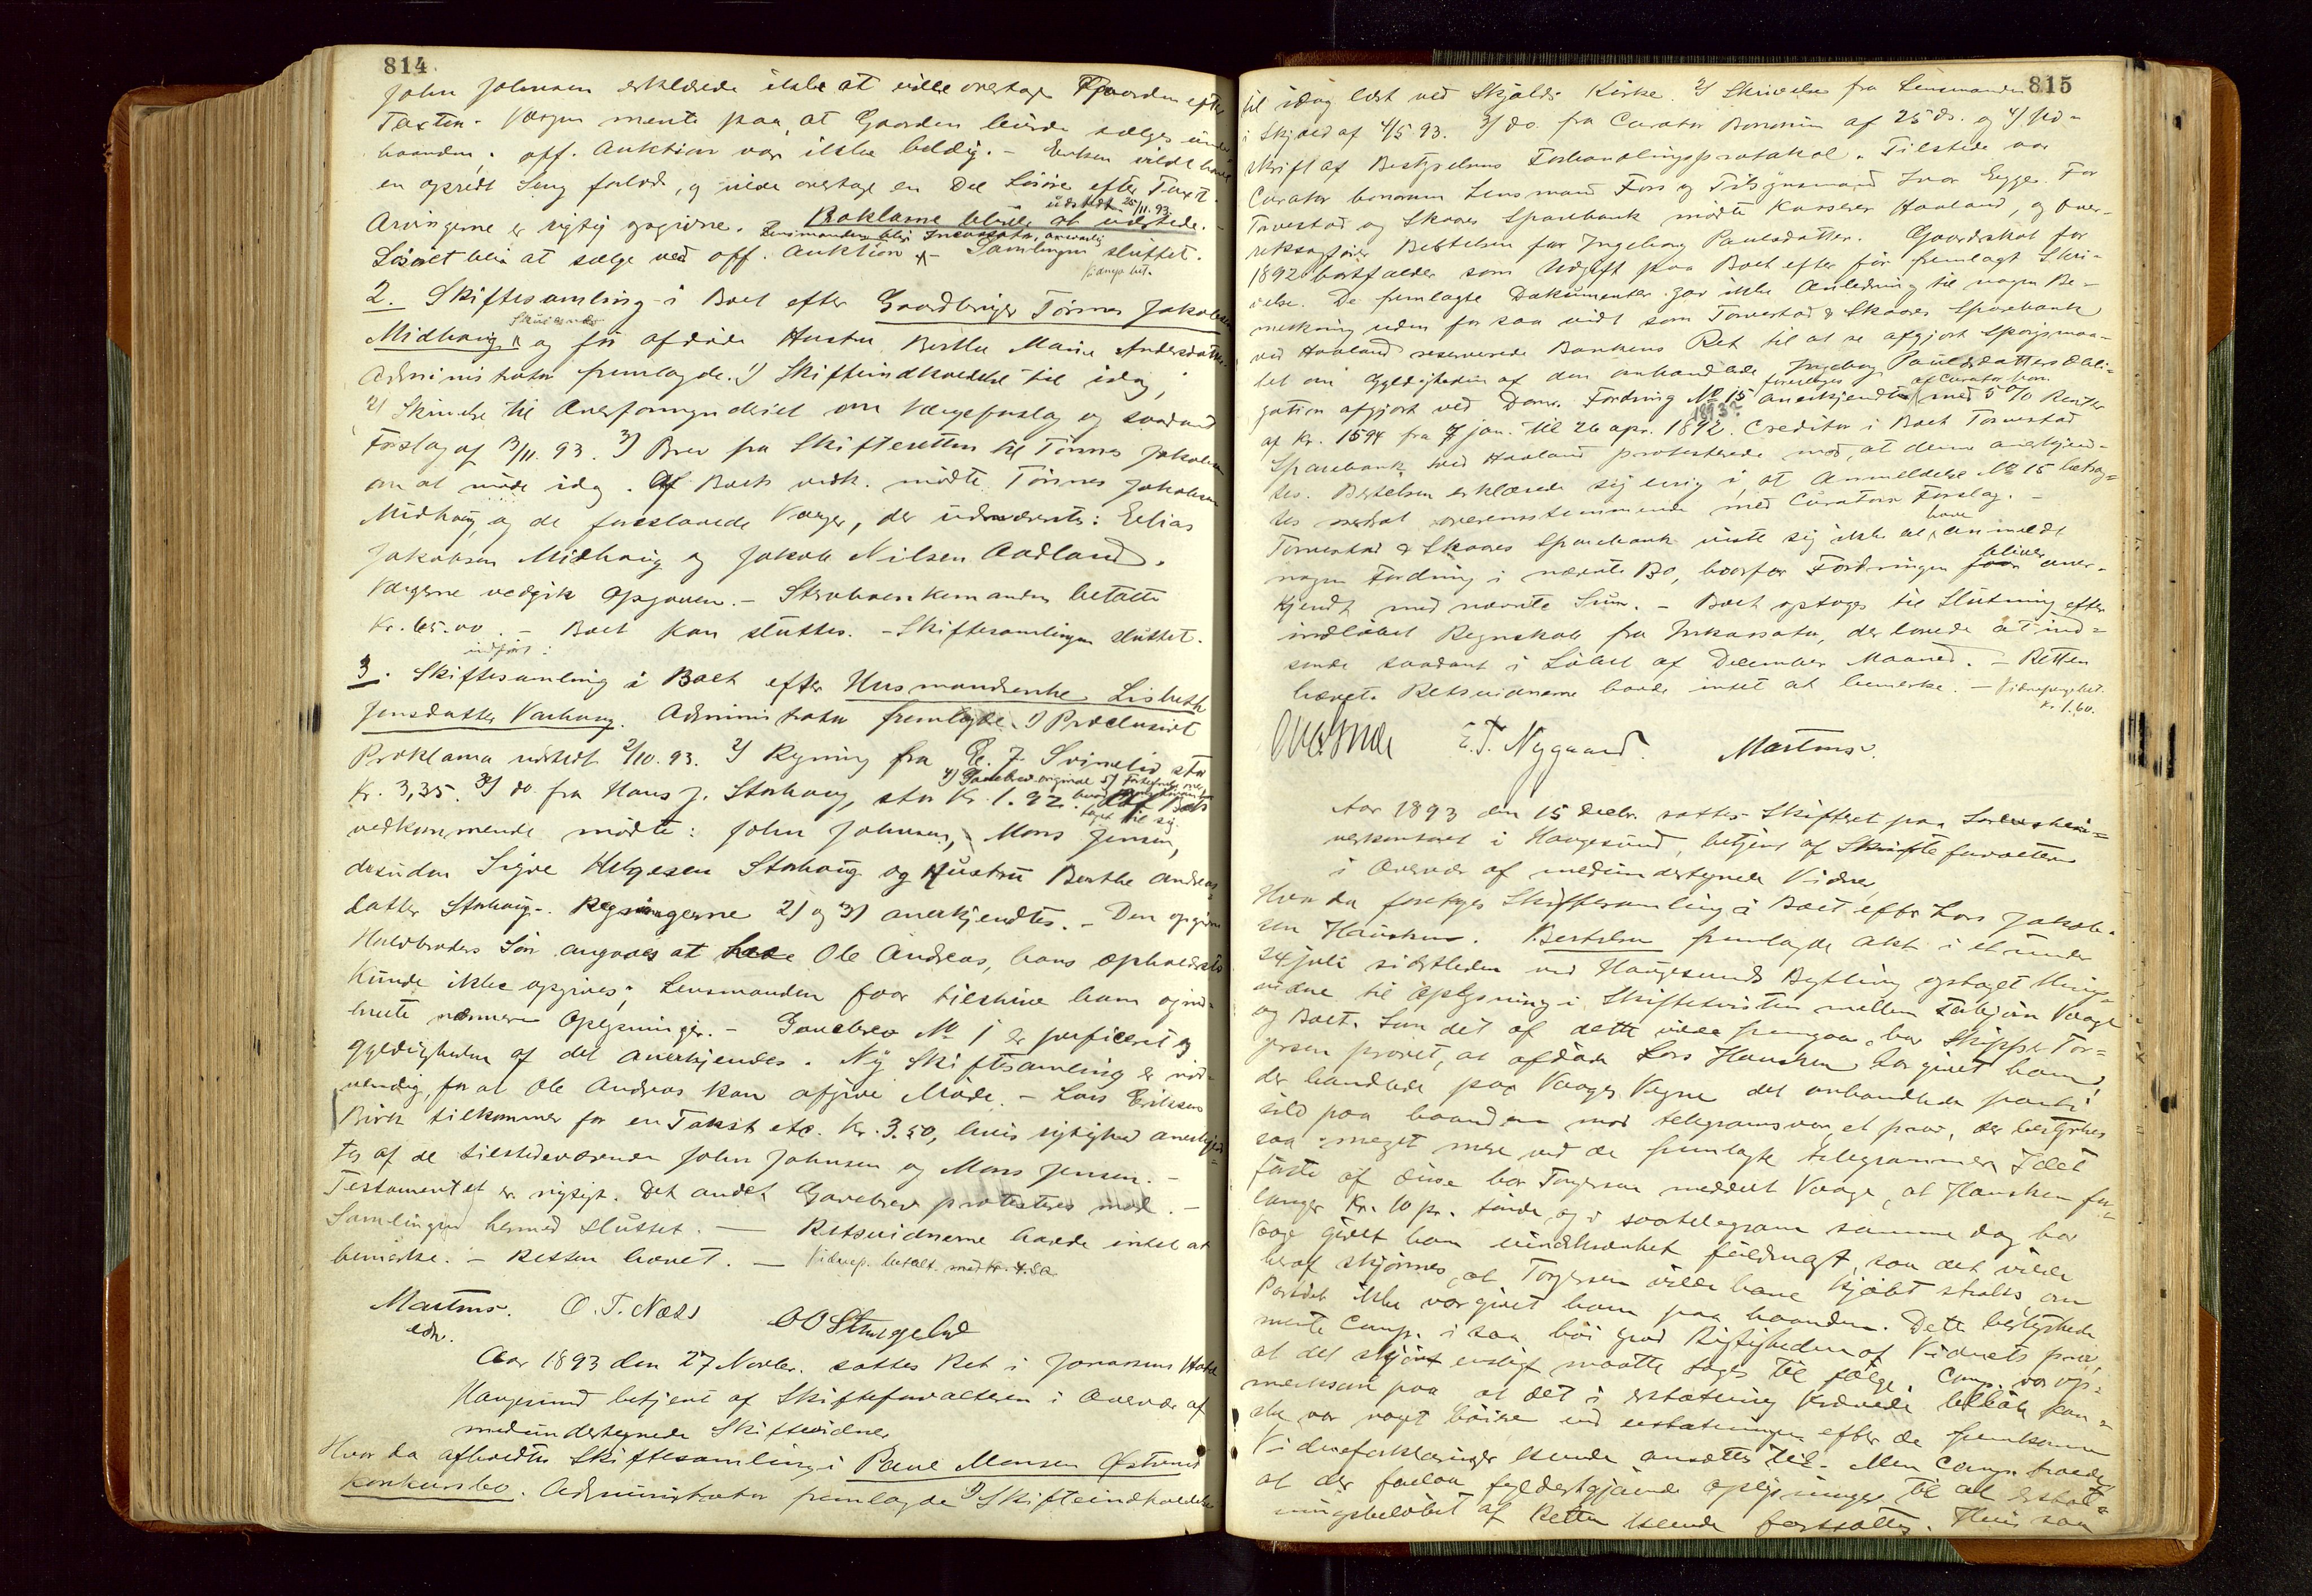 814
John Johnsen erklærede ikke at ville overtage Gaarden efter
Taxten. Værgen mente paa, at Gaarden burde sælges under
haanden; off. Auktion var ikke heldig. - Eriksen vilde have
en opredt Seng forlods, og vilde overtage en Del Løsøre efter Taxt.
udstedt 25/11. 93.
Arvingerne er rigtig opgivne. Proklama bliver at udstede. -
Lensmanden blir Incassator,
Løsøret blir at sælge ved off. Auktion - Samlingen sluttet.
2. Skiftesamling i Boet efter Gaardbruger Tønnes Jakobsen
Midhaug og før afdøde Hustru Berthe Marie Andersdatter
Administrator fremlagde 1) Skifteindkaldelse til idag,
2) Skrivelse til Overformynderiet om Værgeforslag og saadant
Forslag af 13/11. 93. 3) Brev fra Skifteretten til Tønnes Jakobsen
om at møde idag. Af Boets vedk. mødte Tønnes Jakobsen
Midhaug og de foreslaaede Værger, der udnævntes: Elias
Jakobsen Midhaug og Jakob Nilsen Aadland.
Værgerne vedgik Opgaven. - Stervboenkemanden betalte
Kr. 65.00. - Boet kan sluttes. - Skiftesamlingen sluttet.
indført:
3. Skiftesamling i Boet efter Husmandsenke Lisbeth
Jensdatter Varhaug. Administrator fremlagde 1) Præclusivt
Proklama udstedt 2/10. 93. 2) Regning fra E. J. Svinelid stor
4) Gavebrev original 5)
Kr. 3,35. 3) do fra Hans J. Storhaug, stor Kr. 1.92. Af Boets
taget til sig.
vedkommende mødte: John Johnsen, Mons Jensen,
desuden Sigve Helgesen Storhaug og Hustru Berthe Andreas
datter Storhaug. Regningerne 2) og 3) anerkjendtes. - Den opgivne
Halvbroders Søn angaves at hede Ole Andreas, hans Opholdssted
kunde ikke opgives; Lensmanden faar tilskrive ham og ind-
hente nærmere Oplysninger. - Gavebrev No 1 er perficeret og
Gyldigheden af det anerkjendes. Ny Skiftesamling er nød-
vendig, for at Ole Andreas kan afgive Møde. - Lars Eriksen
Birk tilkommer for en Takst etc. Kr. 3.50, hvis rigtighed anerkjend-
tes af de tilstedeværende John Johnsen og Mons Jensen. -
Testamentet er rigtigt. Det andet Gavebrev protesteres mod. -
Samlingen hermed sluttet. - Retsvidnerne havde intet at
bemerke. - Retten hævet. - Vidnep. betalt med Kr.
Martens. O. T. Næss
edr.
Aar 1893 den 27 Novbr. sattes Ret i Jonassens Hotel
Haugesund betjent af Skifteforvalteren i Overvær af
medundertegnede Skiftevidner
Hvor da afholdtes Skiftesamling i Paul Monsen Østrems
Konkursbo. Administrator fremlagde 1) Skifteindkaldelse
815
til idag læst ved Skjolds Kirke. 2) Skrivelse fra Lensmanden
i Skjold af 4/5 93. 3) do. fra Curator Bonorum af 25 ds. og 4) Ud-
skrift af Bestyrelsens Forhandlingsprotokol. Tilstede var
Curator bonorum Lensmand Foss og Tilsynsmand Ivar Egge. For
Torvestad og Skaares Sparebank mødte Kasserer Haaland, og Over-
retssagfører Bertelsen for Ingeborg Paulsdatter. Gaardskat for
1892 bortfalder som Udgift paa Boet efter før fremlagt Skri-
velse. De fremlagte Dokumenter gav ikke Anledning til nogen Be-
merkning uden for saa vidt som Torvestad & Skaares Sparebank
ved Haaland reserverede Bankens Ret til at se afgjort Spørgsmaa-
let om Gyldigheden af den omhandlede Ingeborg Paulsdatters Obli-
foreslaaes af Curator bon.
gation afgjort ved Dom. Fordring No 15 anerkjendt med 5 % Renter
1893?
af Kr. 1594 fra 7 jan. til 26 apr. 1892. Creditor i Boet Torvestad
Sparebank ved Haaland protesterede mod, at denne anerkjend-
tes. Bertelsen erklærede sig enig i, at Anmeldelse No 15 betrag-
tes overensstemmende med Curators Forslag. -
have
Torvestad & Skaares Sparebank viste sig ikke at anmeldt
bliver
nogen Fordring i nævnte Bo, hvorfor Fordringen aner-
kjendt med nævnte Sum. - Boet optages til Slutning efter
indløbet Regnskab fra Inkassator, der lovede at ind-
sende saadant i Løbet af December Maaned. - Retten
hævet. Retsvidnerne havde intet at bemerke. - Vidnepenge bet.
Kr. 1.60.
E. T. Nygaard. Martens.
Aar 1893 den 15 Decbr. sattes Skifteret paa Sorenskri-
verkontoret i Haugesund, betjent af Skifteforvalteren
i Overvær af medundertegnede Vidner,
Hvor da foretoges Skiftesamling i Boet efter Lars Jakob-
sen Hausken. Bertelsen fremlagde Akt i et under
24 juli sidstleden ved Haugesunds Bything optaget things-
vidne til Oplysning i Skiftetvisten mellem Torbjørn Vaage
og Boet. Som det af dette vilde fremgaa, har Skipper Tor-
gersen provet, at afdøde Lars Hausken har givet ham,
der handlede paa Vaages Vegne det omhandlede parti
sild paa haanden mod telegramsvar, et prov, der bestyrkes
saa meget mere ved de fremlagte telegrammer. Idet
første af disse har Torgersen meddelt Vaage, at Hausken for-
langer Kr. 10 pr. tønde, og i svartelegram samme dag har
Vaage givet ham uindskrænket fuldmagt, saa det vilde
heraf skjønnes, at Torgersen vilde have kjøbt straks, om
Partiet ikke var givet ham paa haanden. Dette bestyrkede
mente Comp. i saa høi grad Rigtigheden af Vidnets prov,
at det skjønt enligt maatte tages til følge. Comp. var op-
merksom paa at det i erstatning krævede beløb kan-
ske var noget høiere end erstatningen efter de fremkomne
Vidneforklaringer kunde ansættes til. Men Comp. troede,
at der forelaa fyldestgjørende oplysninger til at erstat-
ningsbeløbet af Retten kunde fastsættes. Hvis saa